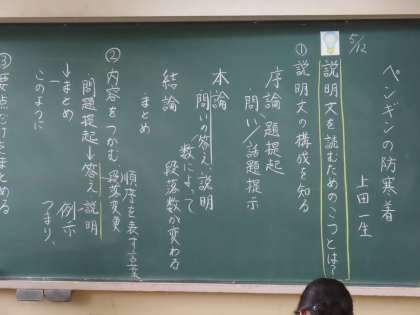 ペンギンの防寒着
上田一生
5/12
説明文を読むためのこつとは?
①説明文の構成を知る
序論、題提起
問い/話題提示
本論
問いの答え、説明
数によって
段落数が変わる
結論
まとめ
②内容をつかむ
順序を表す言葉
段落変更
問題提起→答え、説明
例示
→まとめ
つまり、
このように
③要点だけをまとめる